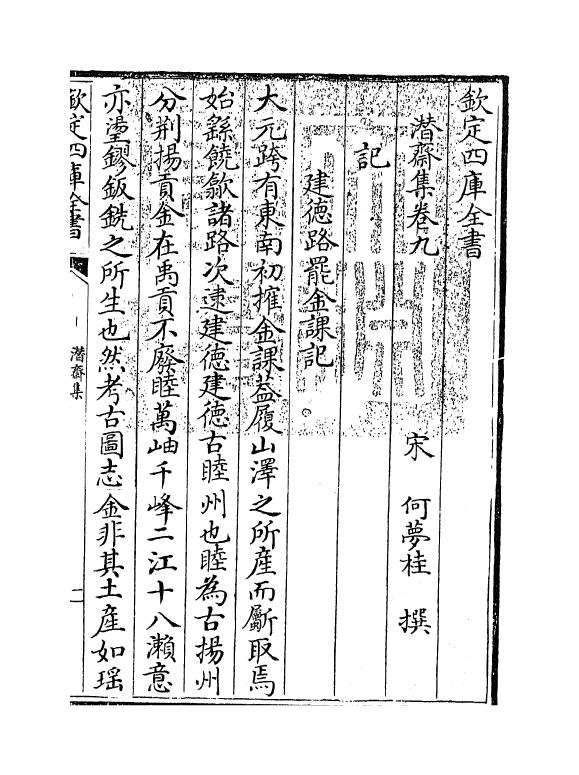 欽定四庫全書
潛齋集卷九
宋 何夢桂 撰
記
建德路罷金課記
大元跨有東南初搉金課葢履山澤之所産而斸取焉
始繇饒歙諸路次逮建德建德古睦州也睦為古揚州
分荆揚貢金在禹貢不廢睦萬岫千峰二江十八瀬意
亦璗鏐鈑銑之所生也然考古圖志金非其土産如瑶
欽定四庫全書
潛齋集
一